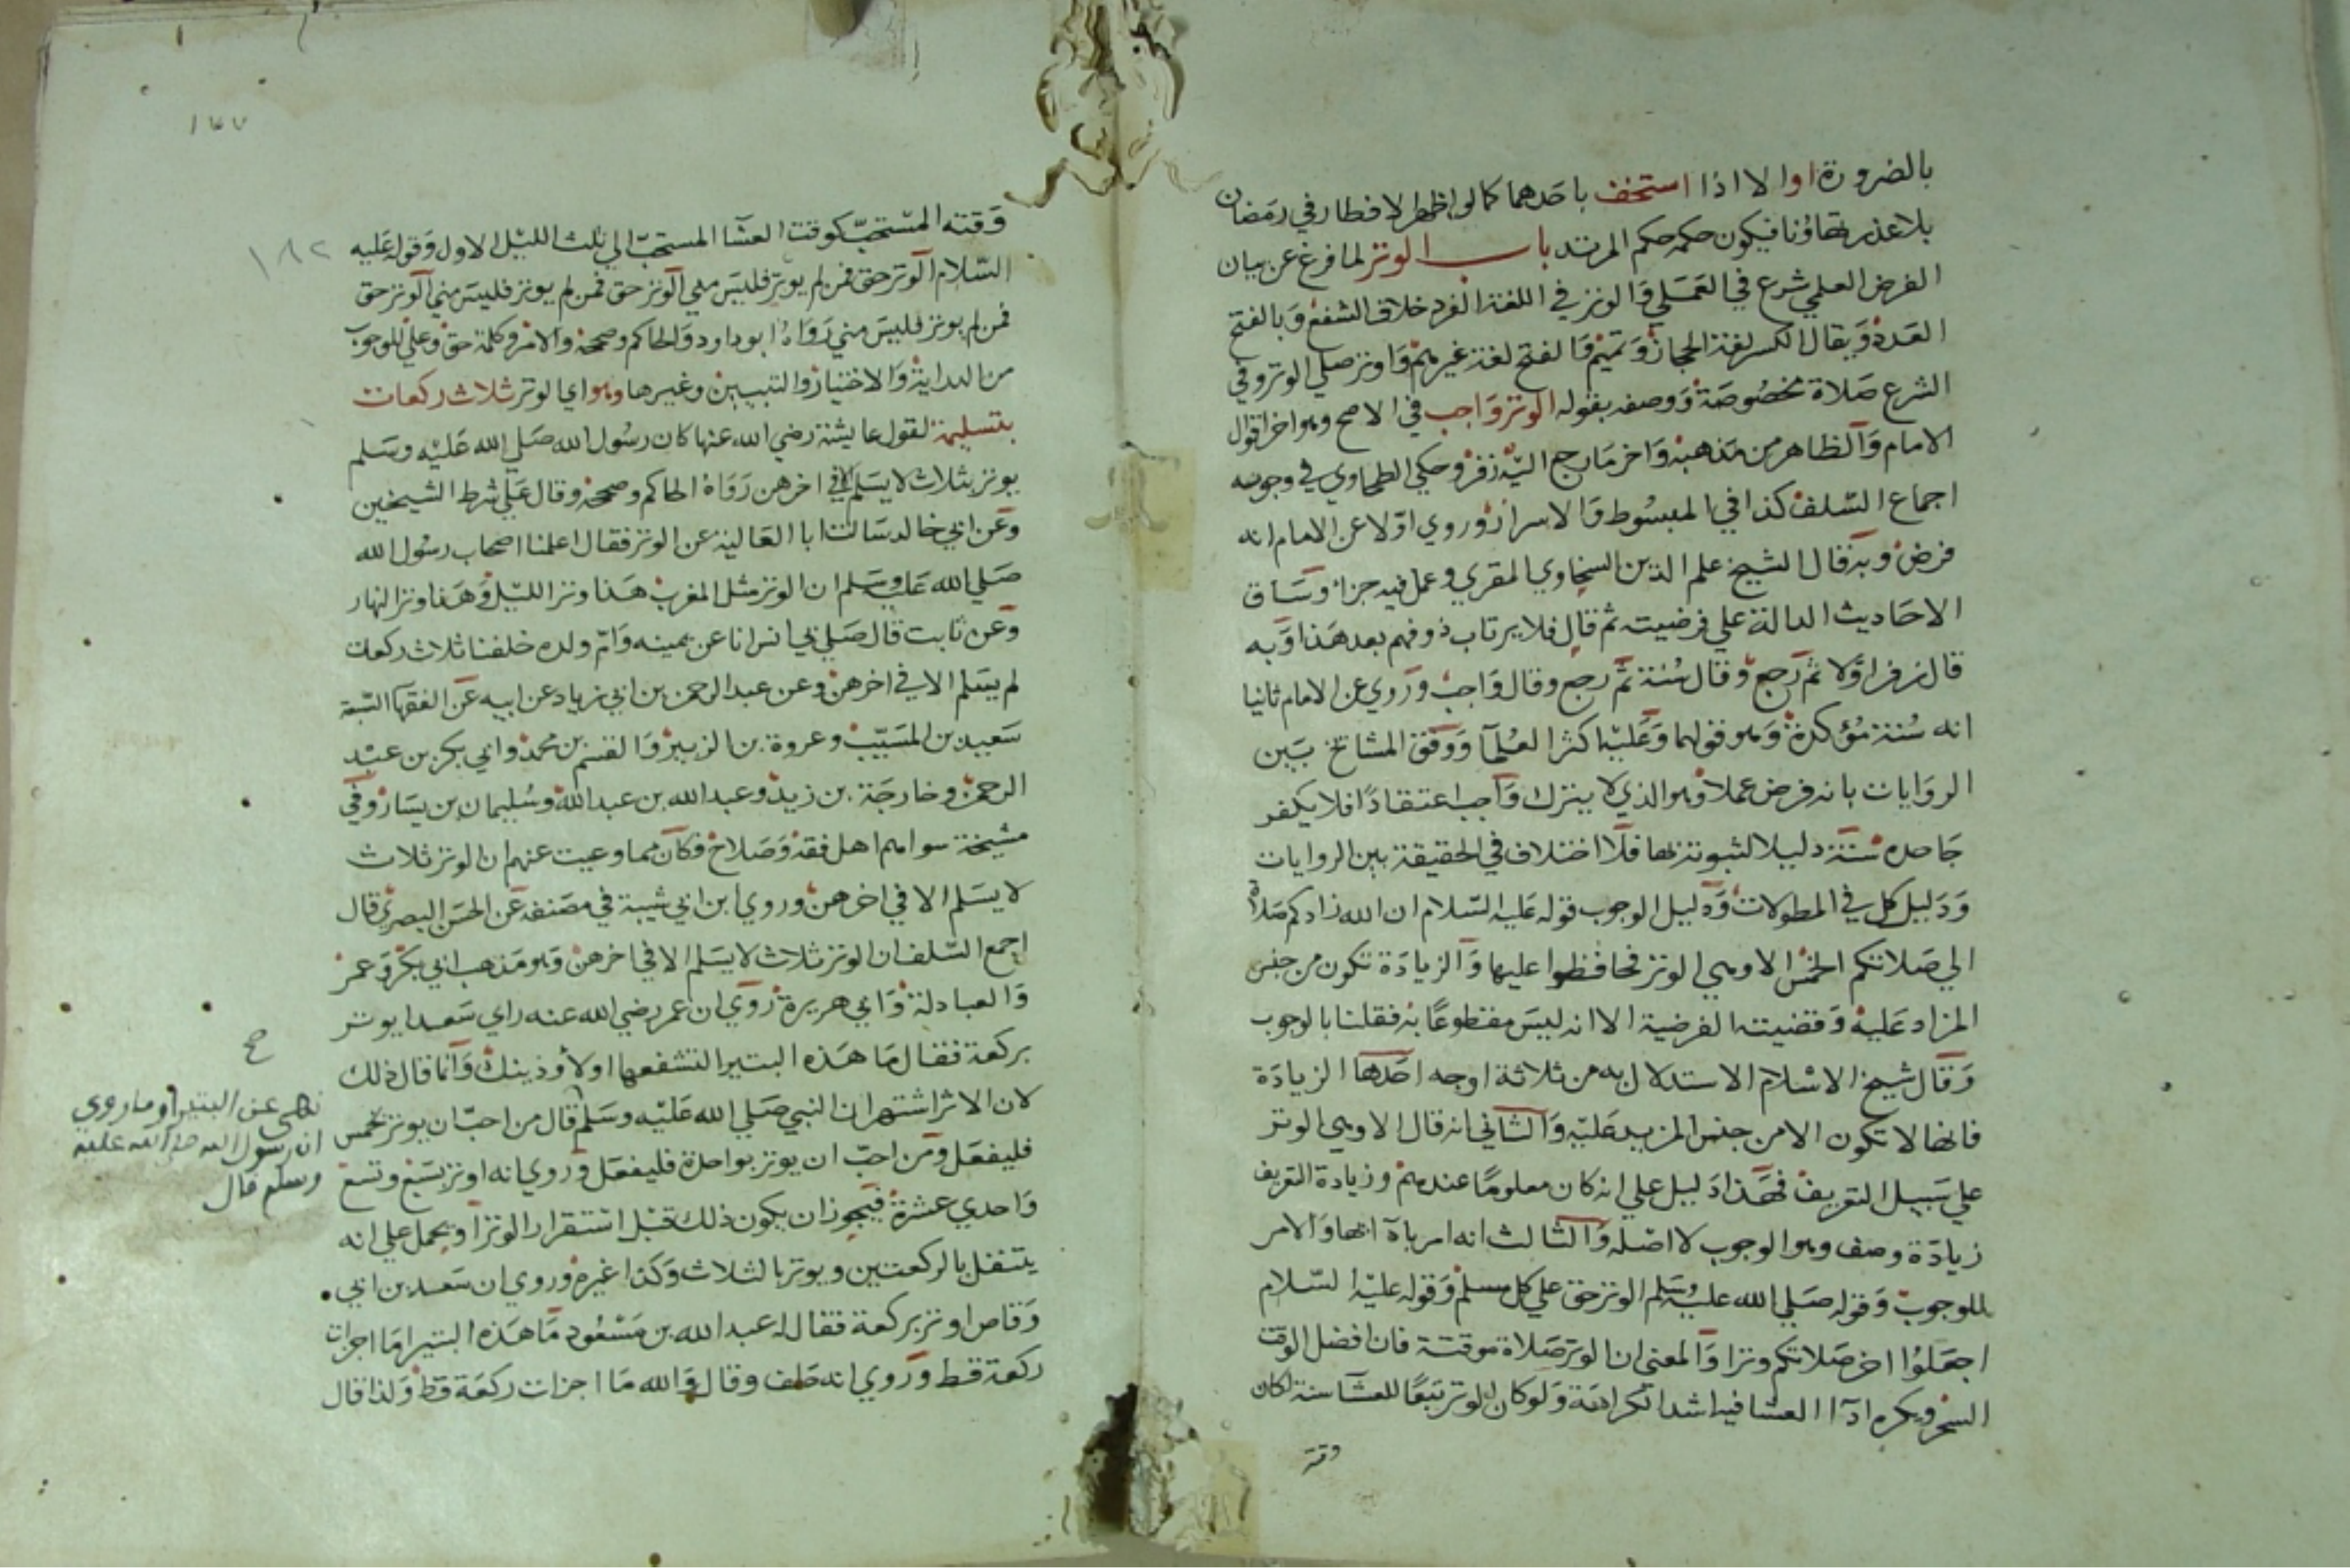 بالضرورة اوا لا اذا استخف باحدهما كما لو اظهر الافطار في رمضان
بلا عذر تهاونا فيكون حكمه حكم المرتد باب الوتر لما فرغ عن بيان
الفرض العلمي شرع في العملي والوتر في اللغة الفرد خلاف الشفع وبالفتح
العدد ويقال الكسر لغة الحجاز وتميم والفتح لغة غيرهم واوتر صلي الوتر وفي
الشرع صلاة مخصوصة ووصفه بقوله الوتر واجب في الاصح وهو اخر اقوال
الامام والظاهر من مذهبه واخر ما رجع اليه زفر وحكي الطحاوي في وجوبه
اجماع السلف كذا في المبسوط والاسرار وروي اولا عن الامام انه
فرض وبه قال الشيخ علم الدين السخاوي المقري وعمل فيه جزا وساق
الاحاديث الدالة علي فرضيته ثم قال فلا يرتاب ذو فهم بعد هذا وبه
قال زفر اولا ثم رجع وقال سنة ثم رجع وقال واجب وروي عن الامام ثانيا
انه سنة مؤكدة وهو قولهما وعليه اكثر العلما ووفق المشائخ بين
الروايات بانه فرض عملا وهو الذي لا يترك واجب اعتقادا فلا يكفر
جاحده سنة دليلا لثبوته بها فلا اختلاف في الحقيقة بين الروايات
ودليل كل في المطولات ودليل الوجوب قوله عليه السلام ان الله زادكم صلاة
الي صلاتكم الخمس الا وهي الوتر فحافظوا عليها والزيادة تكون من جنس
المزاد عليه وقضيته الفرضية الا انه ليس مقطوعا به فقلنا بالوجوب
وقال شيخ الاسلام الاستدلال به من ثلاثة اوجه احدها الزيادة
فانها لا تكون الا من جنس المزيد عليه والثاني انه قال الا وهي الوتر
علي سبيل التعريف فهذا دليل علي انه كان معلوما عندهم وزيادة التعريف
زيادة وصف وهو الوجوب لا اصله والثالث انه امر بادائها والامر
للوجوب وقوله صلي الله عليه وسلم الوتر حق علي كل مسلم وقوله عليه السلام
اجعلوا اخر صلاتكم وترا والمعني ان الوتر صلاة موقتة فان افضل الوقت
السحر ويكره ادآ العشا فيه اشد الكراهة ولو كان الوتر تبعا للعشا سنة لكان
وقته
١٧٧
١٨٢
وقته المستحب كوقت العشا المستحب الي ثلث الليل الاول وقوله عليه
السلام الوتر حق فمن لم يوتر فليس مني الوتر حق فمن لم يوتر فليس مني الوتر حق
فمن لم يوتر فليس مني رواه ابو داود والحاكم وصححه والامر وكلمة حق وعلي للوجوب
من الدراية والاختيار والتبيين وغيرها وهو اي الوتر ثلاث ركعات
بتسليمة لقول عايشة رضي الله عنها كان رسول الله صلي الله عليه وسلم
يوتر بثلاث لا يسلم الا في اخرهن رواه الحاكم وصححه وقال علي شرط الشيخين
وعن ابي خالد سالت ابا العالية عن الوتر فقال علمنا اصحاب رسول الله
صلي الله عليه وسلم ان الوتر مثل المغرب هذا وتر الليل وهذا وتر النهار
وعن ثابت قال صلي بي انس انا عن يمينه وام ولده خلفنا ثلاث ركعات
لم يسلم الا في اخرهن وعن عبد الرحمن بن ابي زياد عن ابيه عن الفقها السبعة
سعيد بن المسيب وعروة بن الزبير والقسم بن محمد وابي بكر بن عبد
الرحمن وخارجة بن زيد وعبد الله بن عبد الله وسليمان بن يسار وفي
مشيخة سواهم اهل فقه وصلاح فكان مما وعيت عنهم ان الوتر ثلاث
لا يسلم الا في اخرهن وروي ابن ابي شيبة في مصنفه عن الحسن البصري قال
اجمع السلف ان الوتر ثلاث لا يسلم الا في اخرهن وهو مذهب ابي بكر وعمر
والعبادلة وابي هريرة روي ان عمر رضي الله عنه راي سعدا يوتر
بركعة فقال ما هذه البتيرا لتشفعها او لأوذينك وانما قال ذلك
لان الاثر اشتهر ان النبي صلي الله عليه وسلم قال من احب ان يوتر بخمس
فليفعل ومن احب ان يوتر بواحدة فليفعل وروي انه اوتر بسبع وتسع
واحدي عشرة فيجوز ان يكون ذلك قبل استقرار الوتر او يحمل علي انه
يتنفل بالركعتين ويوتر بالثلاث وكذا غيره وروي ان سعد بن ابي
وقاص اوتر بركعة فقال له عبد الله بن مسعود ما هذه البتيرا ما اجزات
ركعة قط وروي انه حلف وقال والله ما اجزات ركعة قط ولذا قال
صح
نهى عن البتيرا وما روي
ان رسول الله صلى الله عليه
وسلم قال